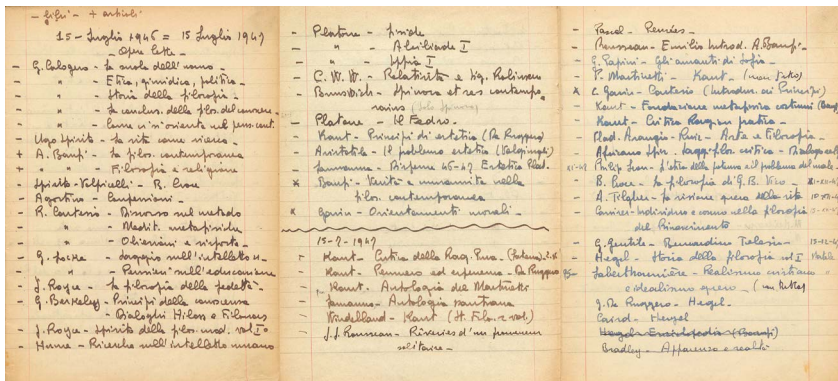 - libri - + articoli
15 - Luglio 1946 = 15 Luglio 1947
- Opere lette -
- G. Calogero - La scuola dell'uomo -
- " - Etica, giuridica, politica -
- " - Storia della filosofia -
- " - La conclus. della filos. del conoscere -
- " - Come ci si orienta nel pens. cont.
- Ugo Spirito - La vita come ricerca -
+ A. Banfi - La filos. contemporanea
+ " - Filosofia e religione
- Spirito - Volpicelli - B. Croce
- Agostino - Confessioni -
- R. Cartesio - Discorso sul metodo
- " - Medit. metafisiche
- " - Obiezioni e risposte -
- G. Locke - Saggio sull'intelletto u.
- " - Pensieri sull'educazione
- J. Royce - La filosofia della fedeltà -
- G. Berkeley - Principi della conoscenza
- Dialoghi Hilas e Filonous
- J. Royce - Spirito della filos. mod. vol. I°
- Hume - Ricerche sull'intelletto umano
- Platone -
- " - Alcibiade I
- " - Ippia I
- C. W. W. - Relatività e
- Brunschvicg - Spinoza et ses contempo
rains (solo Spinoza)
- Platone - Il Fedro -
- Kant - Principi di estetica (De Ruggero)
- Aristotele - Il problema estetico (Valgimigli)
- Dispense 46-47 Estetica Plat.
* Banfi - Verità e umanità nella
filos. contemporanea
* Garin - Orientamenti morali -
15-7-1947
- Kant - Critica della Rag. Pura -
- Kant - Pensiero ed esperienza - De Ruggero
- Kant - Antologia del Martinetti
- Antologia kantiana
- Windelband - Kant (St. Filos. 2 vol.)
- J.J. Rousseau - Rêveries d'un promeneur
solitaire -
- Pascal - Pensées -
- Rousseau - Emilio Introd. A. Banfi -
- G. Papini - Gli amanti di Sofia -
- P. Martinetti - Kant -
* E. Garin - Cartesio (Introduz. ai Principi)
- Kant - Fondazione metafisica costumi
- Kant - Critica Ragion pratica -
- Vlad. Arangio-Ruiz - Arte e Filosofia -
- Africano Spir - Saggi filos. critica - Dialogo
- Philip Leon - L'etica della potenza o il problema del male -
- B. Croce - La filosofia di G.B. Vico -
- A. Tilgher - La visione greca della vita
- Cassirer - Individuo e cosmo nella filosofia
del Rinascimento
- G. Gentile - Bernardino Telesio -
- Hegel - Storia della filosofia vol. I Natale
- Laberthonnière - Realismo cristiano
e idealismo greco -
- G. De Ruggero - Hegel -
- Caird - Hegel
Hegel - Enciclopedia (Banfi)
Bradley - Apparenza e realtà